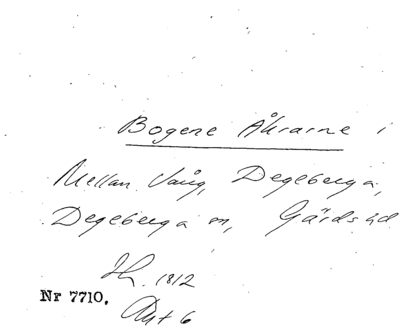 Bogene Åkrarne i
Mellan Vång, Degeberga,
Degeberga sn, Gärds hd
1812
Nr 7710. Akt 6